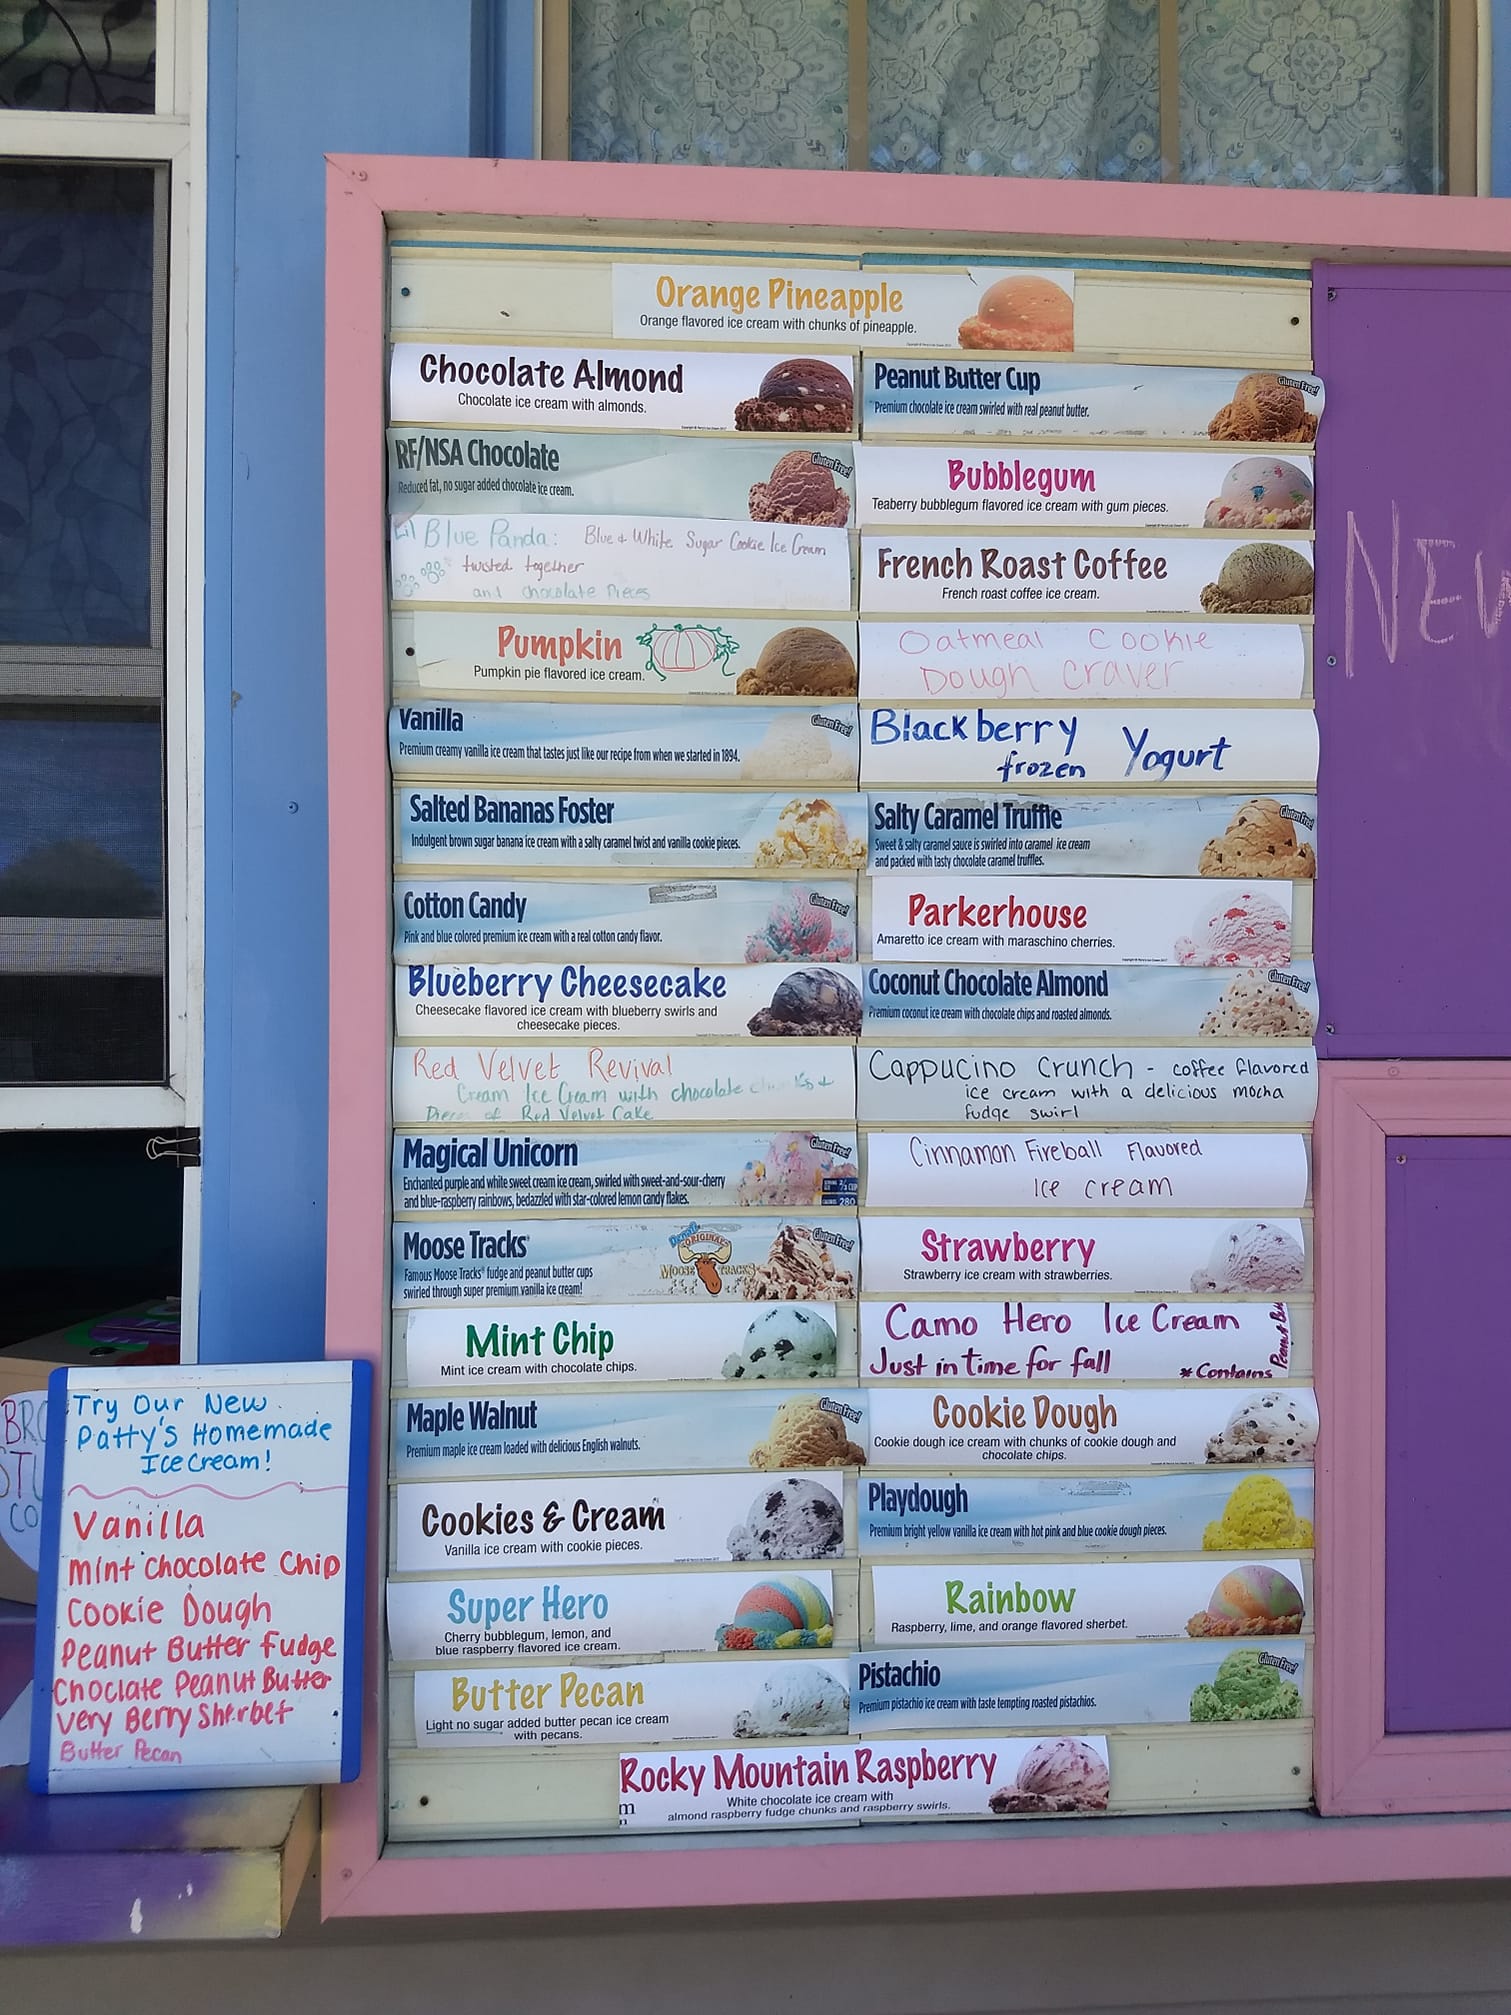 Orange Pineapple
Orange flavored ice cream with chunks of pineapple.
Chocolate Almond
Chocolate ice cream with almonds.
Peanut Butter Cup
Premium chocolate ice cream swirled with real peanut butter.
Gluten Free!
RF/NSA Chocolate
Reduced fat, no sugar added chocolate ice cream.
Gluten Free!
Bubblegum
Teaberry bubblegum flavored ice cream with gum pieces.
Lil Blue Panda: Blue & White Sugar Cookie Ice Cream
twisted together
and chocolate pieces
French Roast Coffee
French roast coffee ice cream.
Pumpkin
Pumpkin pie flavored ice cream.
Oatmeal Cookie
Dough Craver
Vanilla
Premium creamy vanilla ice cream that tastes just like our recipe from when we started in 1894.
Gluten Free!
Blackberry
frozen Yogurt
Salted Bananas Foster
Indulgent brown sugar banana ice cream with a salty caramel twist and vanilla cookie pieces.
Salty Caramel Truffle
Sweet & salty caramel sauce is swirled into caramel ice cream
and packed with tasty chocolate caramel truffles.
Gluten Free!
Cotton Candy
Pink and blue colored premium ice cream with a real cotton candy flavor.
Gluten Free!
Parkerhouse
Amaretto ice cream with maraschino cherries.
Blueberry Cheesecake
Cheesecake flavored ice cream with blueberry swirls and
cheesecake pieces.
Coconut Chocolate Almond
Premium coconut ice cream with chocolate chips and roasted almonds.
Gluten Free!
Red Velvet Revival
Cream Ice Cream with chocolate chunks &
Pieces of Red Velvet Cake
Cappucino Crunch - coffee flavored
ice cream with a delicious mocha
fudge swirl
Magical Unicorn
Enchanted purple and white sweet cream ice cream, swirled with sweet-and-sour-cherry
and blue-raspberry rainbows, bedazzled with star-colored lemon candy flakes.
Gluten Free!
280
Cinnamon Fireball Flavored
Ice cream
Moose Tracks
Famous Moose Tracks® fudge and peanut butter cups
swirled through super premium vanilla ice cream!
Denali
ORIGINAL
MOOSE TRACKS
Gluten Free!
Strawberry
Strawberry ice cream with strawberries.
Mint Chip
Mint ice cream with chocolate chips.
Camo Hero Ice Cream
Just in time for fall * Contains
Maple Walnut
Premium maple ice cream loaded with delicious English walnuts.
Gluten Free!
Cookie Dough
Cookie dough ice cream with chunks of cookie dough and
chocolate chips.
Cookies & Cream
Vanilla ice cream with cookie pieces.
Playdough
Premium bright yellow vanilla ice cream with hot pink and blue cookie dough pieces.
Super Hero
Cherry bubblegum, lemon, and
blue raspberry flavored ice cream.
Rainbow
Raspberry, lime, and orange flavored sherbet.
Butter Pecan
Light no sugar added butter pecan ice cream
with pecans.
Pistachio
Premium pistachio ice cream with taste tempting roasted pistachios.
Gluten Free!
Rocky Mountain Raspberry
White chocolate ice cream with
almond raspberry fudge chunks and raspberry swirls.
NEW
Try Our New
Patty's Homemade
Ice Cream!
Vanilla
Mint Chocolate Chip
Cookie Dough
Peanut Butter Fudge
Choclate Peanut Butter
Very Berry Sherbet
Butter Pecan